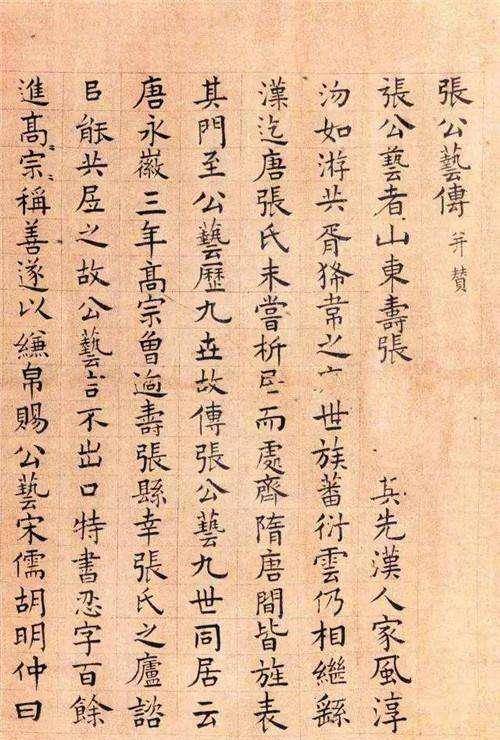 張公藝傳 并贊
張公藝者山東壽張 其先漢人家風淳
沕如游共胥狶韋之世族蕃衍雲仍相繼繇
漢迄唐張氏未嘗析居而處齊隋唐間皆旌表
其門至公藝歷九世故傳張公藝九世同居云
唐永徽三年髙宗曾逈壽張縣幸張氏之廬諮
㠯能共居之故公藝言不出口特書忍字百餘
進髙宗稱善遂以縑帛賜公藝宋儒胡明仲曰